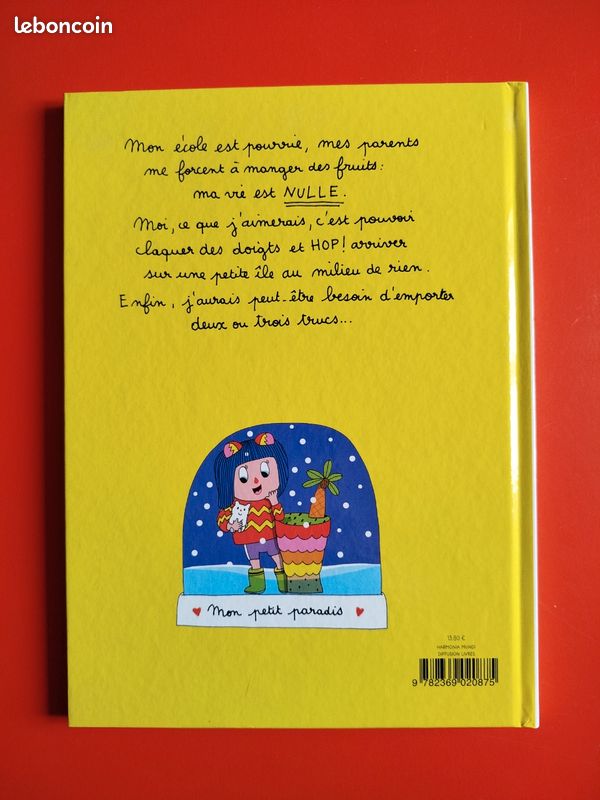 leboncoin
Mon école est pourrie, mes parents
me forcent à manger des fruits:
ma vie est NULLE.
Moi, ce que j'aimerais, c'est pouvoir
claquer des doigts et HOP! arriver
sur une petite île au milieu de rien.
Enfin, j'aurais peut-être besoin d'emporter
deux ou trois trucs...
Mon petit paradis
13,80 €
HARMONIA MUNDI
DIFFUSION LIVRES
9 782369 020875